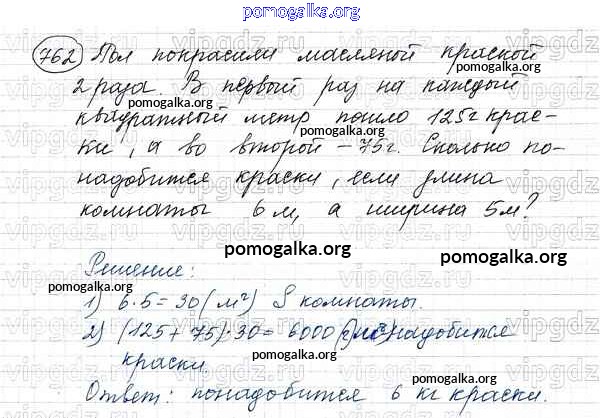 pomogalka.org
762 Пол покрасили масляной краской
2 раза. В первый раз на каждый
pomogalka.org
квадратный метр пошло 125 г крас-
ки, а во второй – 75 г. Сколько по-
надобится краски, если длина
комнаты 6 м, а ширина 5 м?
pomogalka.org
Решение:
1) 6·5=30 (м²) S комнаты.
2) (125+75)·30=6000 (г) понадобится
краски.
Ответ: понадобится 6 кг краски.
pomogalka.org